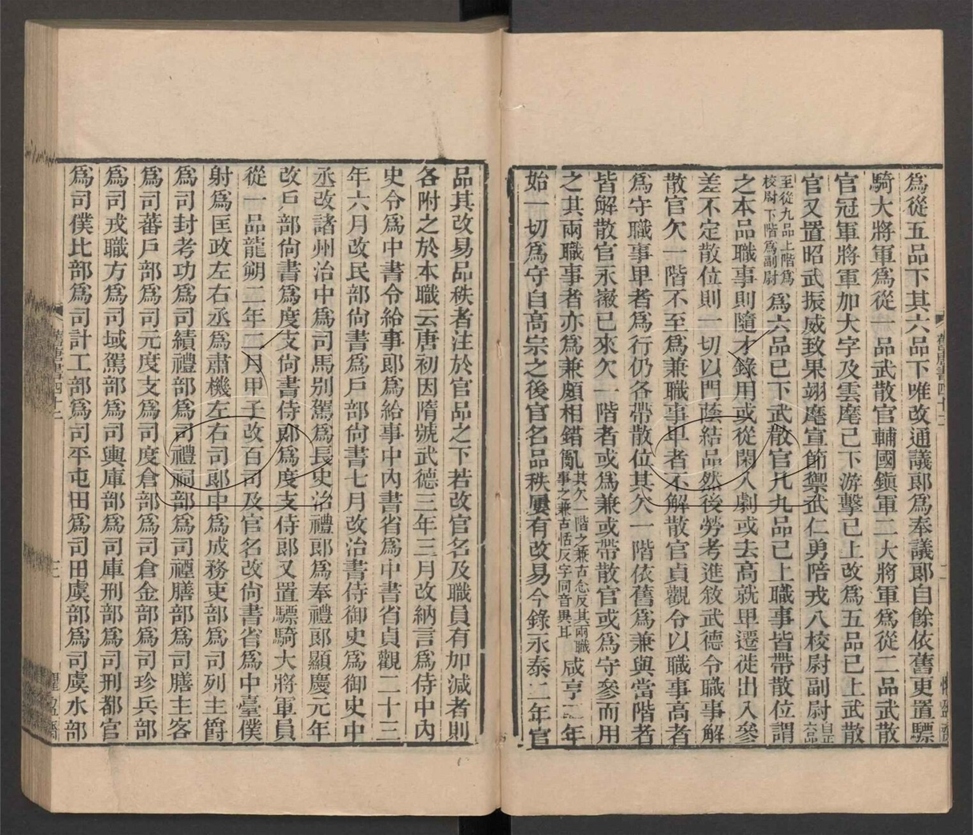 爲從五品下其六品下唯改通議郞爲奉議郞自餘依舊更置驃
騎大將軍爲從一品武散官輔國鎭軍二大將軍爲從二品武散
官冠軍將軍加大字及雲麾已下游擊已上改爲五品已上武散
官又置昭武振威致果翊麾宣節禦武仁勇陪戎八校尉副尉自正六品
至從九品上階爲校尉下階爲副尉爲六品已下武散官凡九品已上職事皆帶散位謂
之本品職事則隨才錄用或從閑入劇或去高就卑遷徙出入參
差不定散位則一切以門蔭結品然後勞考進敘武德令職事解
散官欠一階不至爲兼職事卑者不解散官貞觀令以職事高者
爲守職事卑者爲行仍各帶散位其欠一階依舊爲兼與當階者
皆解散官永徽已來欠一階者或爲兼或帶散官或爲守參而用
之其兩職事者亦爲兼頗相錯亂其欠一階之兼古念反其兩職事之兼古恬反字同音異耳咸亨二年
始一切爲守自高宗之後官名品秩屢有改易今錄永泰二年官
品其改易品秩者注於官品之下若改官名及職員有加減者則
各附之於本職云唐初因隋號武德三年三月改納言爲侍中內
史令爲中書令給事郞爲給事中內書省爲中書省貞觀二十三
年六月改民部尙書爲戶部尙書七月改治書侍御史爲御史中
丞改諸州治中爲司馬別駕爲長史治禮郞爲奉禮郞顯慶元年
改戶部尙書爲度支尙書侍郞爲度支侍郞又置驃騎大將軍員
從一品龍朔二年二月甲子改百司及官名改尙書省爲中臺僕
射爲匡政左右丞爲肅機左右司郞中爲成務吏部爲司列主爵
爲司封考功爲司績禮部爲司禮祠部爲司禋膳部爲司膳主客
爲司蕃戶部爲司元度支爲司度倉部爲司倉金部爲司珍兵部
爲司戎職方爲司域駕部爲司輿庫部爲司庫刑部爲司刑都官
爲司僕比部爲司計工部爲司平屯田爲司田虞部爲司虞水部
舊唐書四十二
三